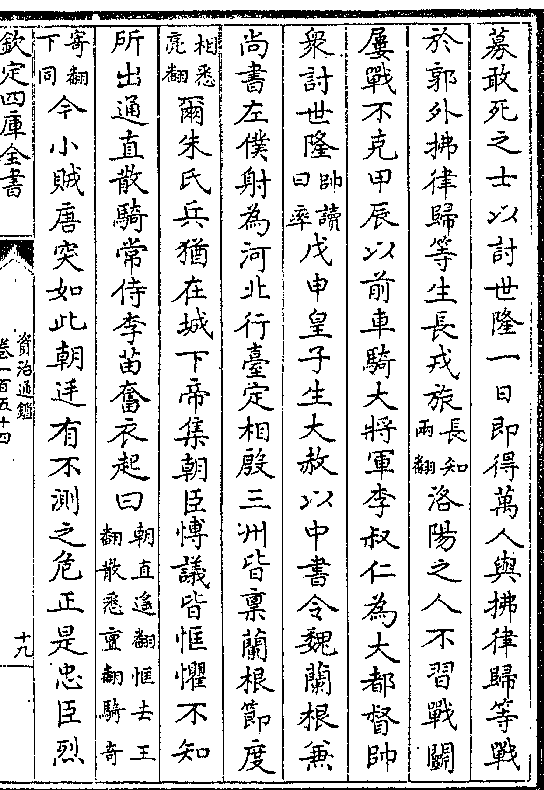 募敢死之士以討世隆一日即得萬人與拂律歸等戰
於郭外拂律歸等生長戎旅長知兩翻洛陽之人不習戰鬭
屢戰不克甲辰以前車騎大將軍李叔仁為大都督帥
衆討世隆帥讀曰率戊申皇子生大赦以中書令魏蘭根兼
尚書左僕射為河北行臺定相殷三州皆禀蘭根節度
相悉亮翻爾朱氏兵猶在城下帝集朝臣愽議皆恇懼不知
所出通直散騎常侍李苗奮衣起曰朝直遥翻恇去王翻散悉亶翻騎奇
寄翻下同今小賊唐突如此朝廷有不測之危正是忠臣烈
欽定四庫全書
資治通鑑
卷一百五十四
十九